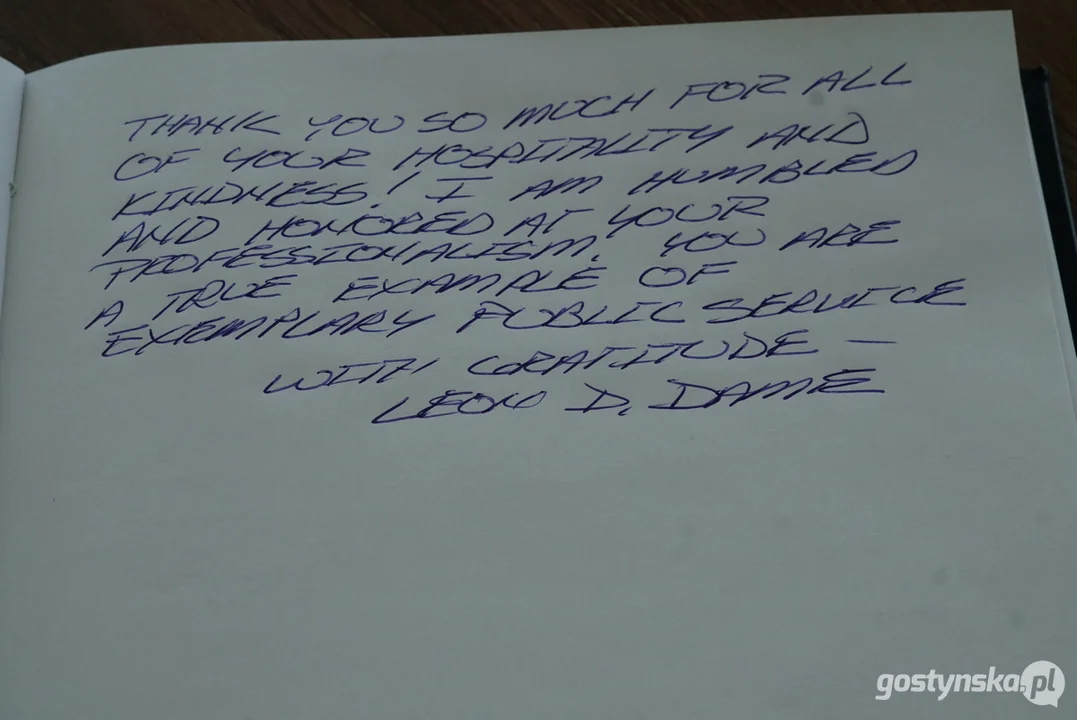 THANK YOU SO MUCH FOR ALL
OF YOUR HOSPITALITY AND
KINDNESS! I AM HUMBLED
AND HONORED AT YOUR
PROFESSIONALISM. YOU ARE
A TRUE EXAMPLE OF
EXEMPLARY PUBLIC SERVICE
WITH GRATITUDE —
LEON D. DAME
gostynska.pl